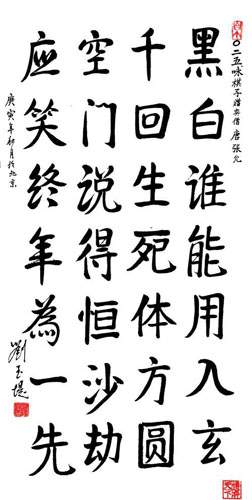 〇二五咏棋子赠弈僧 唐 张
黑白谁能用入玄
千回生死体方圆
空门说得恒沙劫
应笑终年為一先
庚寅年卯月於北京
劉玉堤